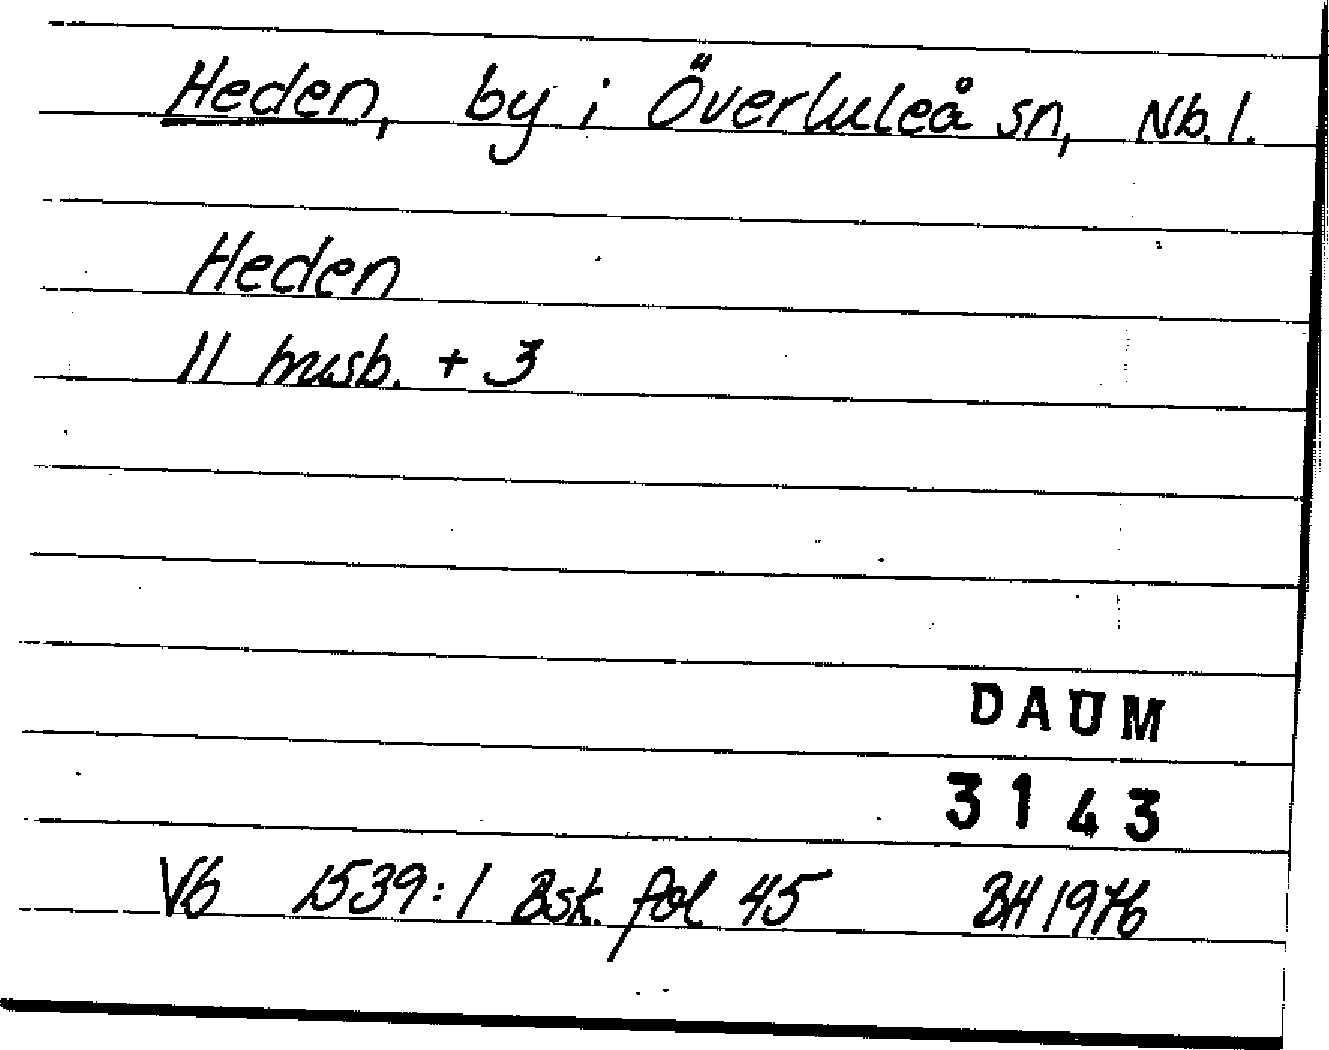 Heden, by i Överluleå sn, Nb. l.
Heden
11 husb. + 3
DAUM
3143
Vb 1539:1 Bsk. fol 45 BH 1976